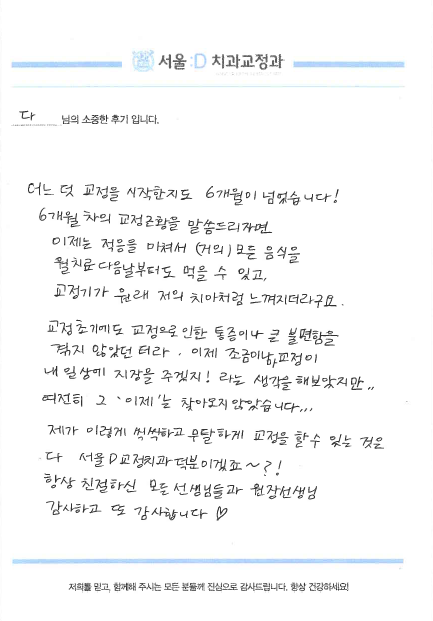 서울:D 치과교정과
다 님의 소중한 후기 입니다.
어느 덧 교정을 시작한지도 6개월이 넘었습니다!
6개월 차의 교정근황을 말씀드리자면
이제는 적응을 마쳐서 (거의) 모든 음식을
월치료 다음날부터도 먹을 수 있고,
교정기가 원래 저의 치아처럼 느껴지더라구요.
교정초기에도 교정으로 인한 통증이나 큰 불편함을
겪지 않았던 터라, 이제 조금이나마 교정이
내 일상에 지장을 주겠지! 라는 생각을 해보았지만,,
여전히 그 '이제'는 찾아오지 않았습니다...
제가 이렇게 씩씩하고 무탈하게 교정을 할 수 있는 것은
다 서울D교정치과 덕분이겠죠~?!
항상 친절하신 모든 선생님들과 원장선생님
감사하고 또 감사합니다 ♡
저희를 믿고, 함께해 주시는 모든 분들께 진심으로 감사드립니다. 항상 건강하세요!